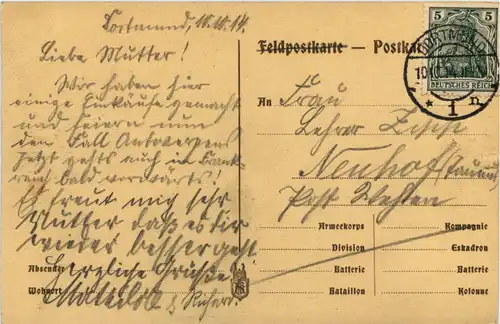 Dortmund, 10.10.14.
Liebe Mutter!
Wir haben hier
einige Einkäufe gemacht
und feiern nun
den Fall Antwerpens
Jetzt gehts auch in Frank-
reich bald vorwärts!
Es freut mich sehr
Mutter daß es dir
wieder besser geht
Herzliche Grüße
Mathilde & Richard.
Absender
Wohnort
Feldpostkarte — Postkarte
5 5
DEUTSCHES REICH
DORTMUND
10.10.14
* 1 n
An Frau
Lehrer Zipp
Neuhof (Taunus)
Post Wehen
Armeekorps Kompagnie
Division Eskadron
Batterie Batterie
Bataillon Kolonne